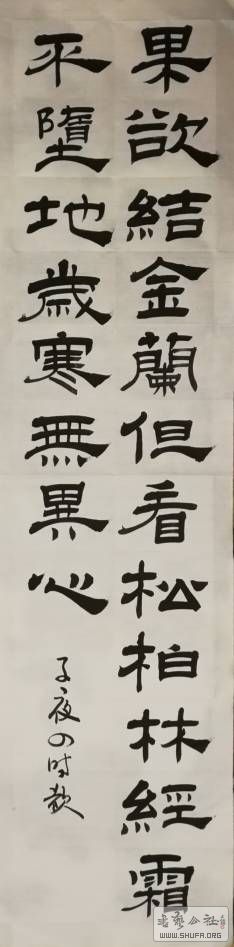 果欲結金蘭但看松柏林經霜
不墮地歲寒無異心
子夜四时歌
書藝公社
WWW.SHUFA.ORG